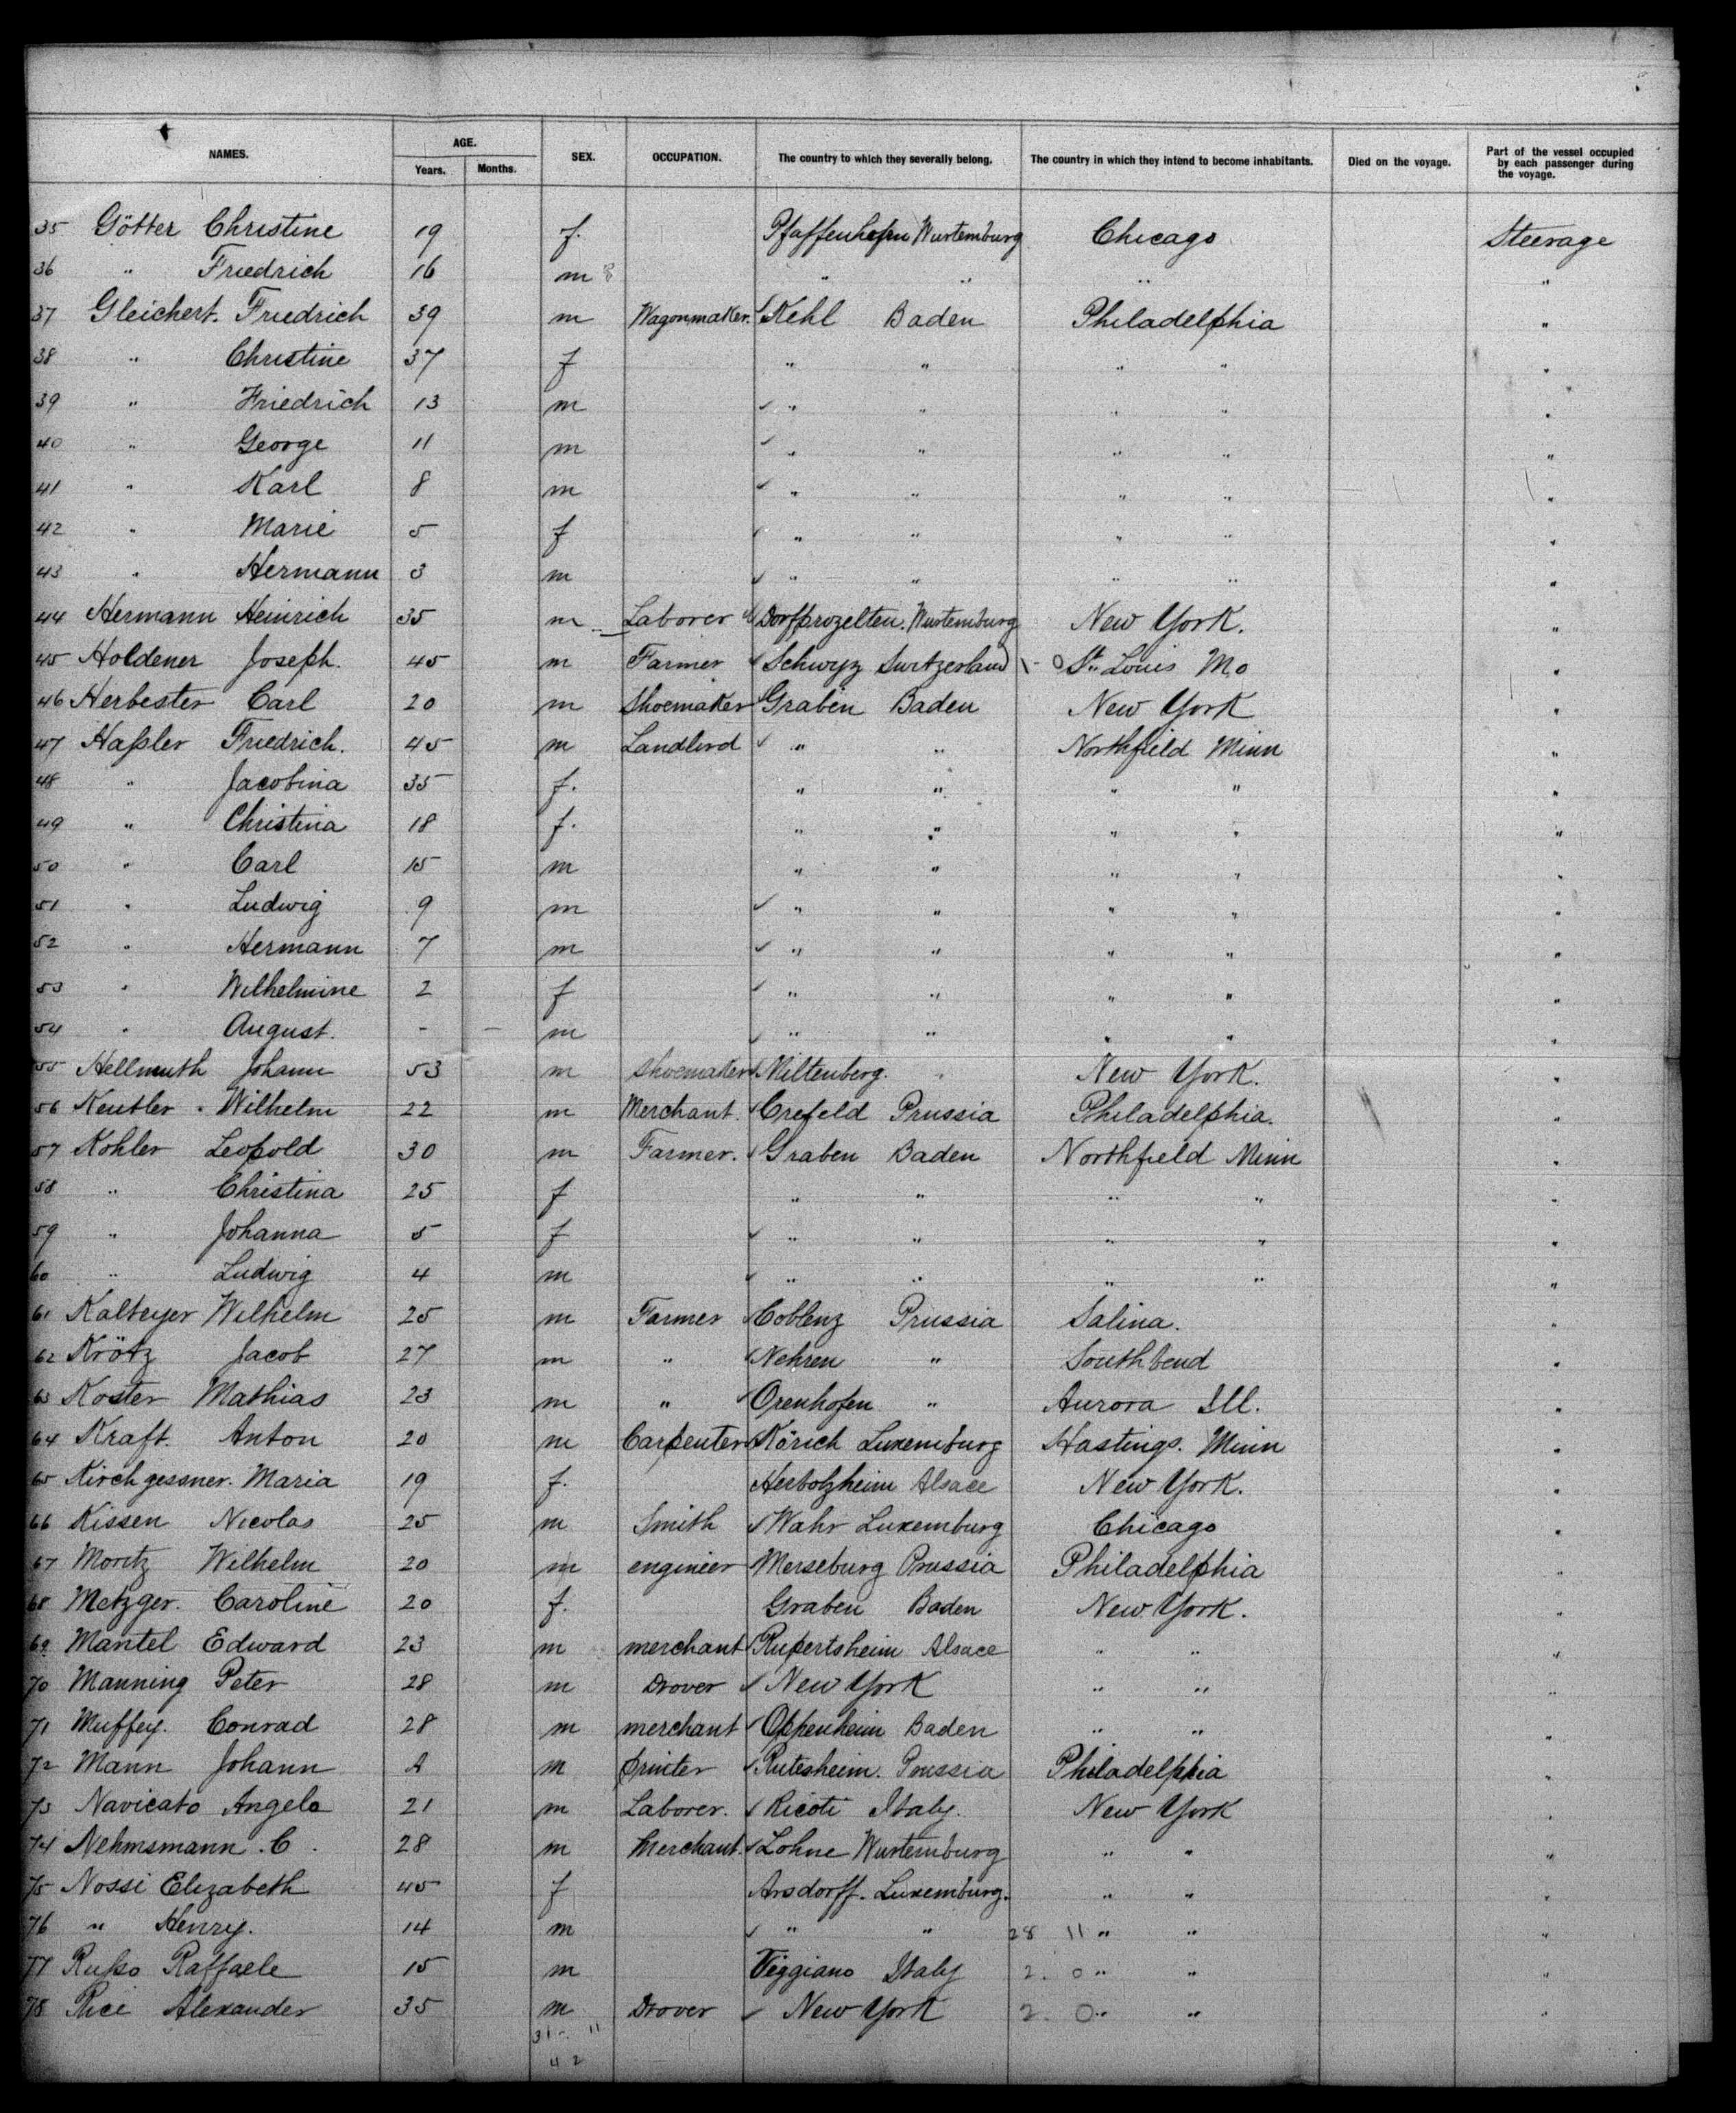 NAMES. AGE. SEX. OCCUPATION. The country to which they severally belong. The country in which they intend to become inhabitants. Died on the voyage. Part of the vessel occupied by each passenger during the voyage.
Years. Months.
35 Götter Christine 19 f. Pfaffenhofen Wurtemburg Chicago Steerage
36 " Friedrich 16 m " " " "
37 Gleichert. Friedrich 39 m Wagonmaker. Kehl Baden Philadelphia "
38 " Christine 37 f " " " " "
39 " Friedrich 13 m " " " " "
40 " George 11 m " " " " "
41 " Karl 8 m " " " " "
42 " Marie 5 f " " " " "
43 " Hermann 3 m " " " " "
44 Hermann Heinrich 35 m Laborer Dorfprozelten. Wurtemburg New York. "
45 Holdener Joseph. 45 m Farmer Schwyz Switzerland St. Louis Mo "
46 Herbester Carl 20 m Shoemaker Graben Baden New York "
47 Haßler Friedrich. 45 m Landlord " " Northfield Minn "
48 " Jacobina 35 f. " " " " "
49 " Christina 18 f. " " " " "
50 " Carl 15 m " " " " "
51 " Ludwig 9 m " " " " "
52 " Hermann 7 m " " " " "
53 " Wilhelmine 2 f " " " " "
54 " August. - - m " " " " "
55 Hellmuth Johann 53 m Shoemaker Miltenberg. " New York. "
56 Keutler Wilhelm 22 m Merchant. Crefeld Prussia Philadelphia. "
57 Kohler Leopold 30 m Farmer. Graben Baden Northfield Minn "
58 " Christina 25 f " " " " "
59 " Johanna 5 f " " " " "
60 " Ludwig 4 m " " " " "
61 Kalteyer Wilhelm 25 m Farmer Coblenz Prussia Salina. "
62 Krötz Jacob 27 m " Nehren " Southbend "
63 Koster Mathias 23 m " Orenhofen " Aurora Ill. "
64 Kraft. Anton 20 m Carpenter Körich Luxemburg Hastings. Minn "
65 Kirchgessner. Maria 19 f. Herbolzheim Alsace New York. "
66 Kissen Nicolas 25 m Smith Wahr Luxemburg Chicago "
67 Moritz Wilhelm 20 m engineer Merseburg Prussia Philadelphia "
68 Metzger. Caroline 20 f. Graben Baden New York. "
69 Mantel Edward 23 m merchant Rupertsheim Alsace " " "
70 Manning Peter 28 m Drover New York " " "
71 Muffey. Conrad 28 m merchant Oppenheim Baden " " "
72 Mann Johann A m printer Rutesheim. Prussia Philadelphia "
73 Navicato Angelo 21 m Laborer. Ricoti Italy. New York "
74 Nehmsmann. C. 28 m Merchant. Lohne Wurtemburg " " "
75 Nossi Elizabeth 45 f Arsdorff. Luxemburg. " " "
76 " Henry. 14 m " " 28 11 " " "
77 Rußo Raffaele 15 m Viggiano Italy 2. 0 " " "
78 Rice Alexander 35 m Drover New York 2. 0 " " "
31 - 11
42